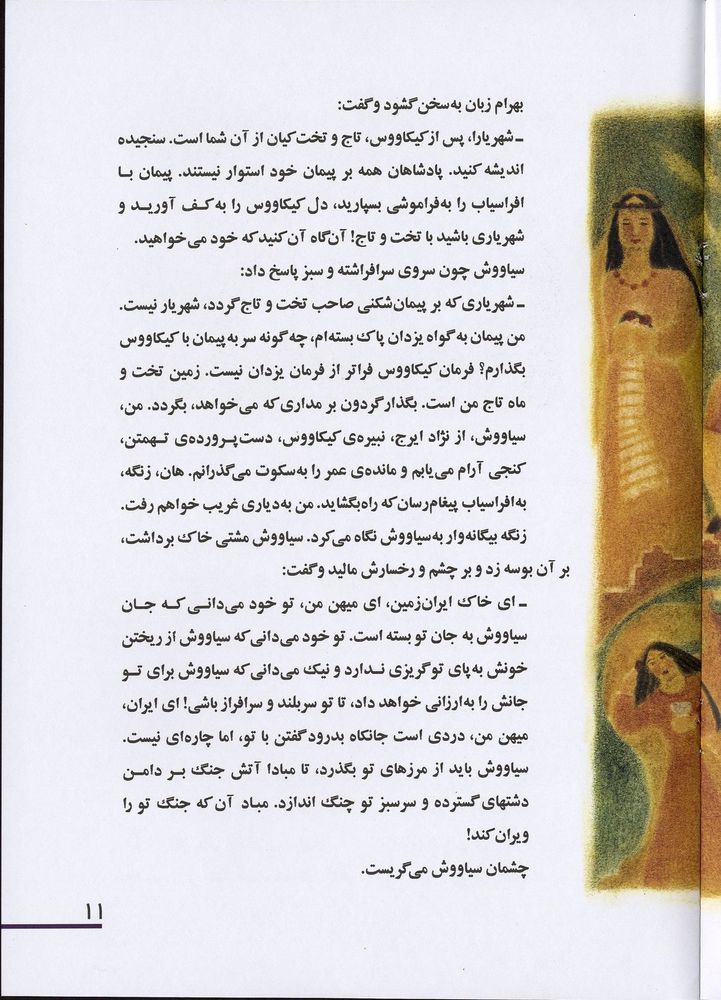 بهرام زبان به‌سخن گشود و گفت:
ـ شهریارا، پس از کیکاووس، تاج و تخت کیان از آن شما است. سنجیده
اندیشه کنید. پادشاهان همه بر پیمان خود استوار نیستند. پیمان با
افراسیاب را به‌فراموشی بسپارید، دل کیکاووس را به‌کف آورید و
شهریاری باشید با تخت و تاج! آن‌گاه آن کنید که خود می‌خواهید.
سیاووش چون سروی سرافراشته و سبز پاسخ داد:
ـ شهریاری که بر پیمان‌شکنی صاحب تخت و تاج گردد، شهریار نیست.
من پیمان به‌گواه یزدان پاک بسته‌ام، چه‌گونه سر به پیمان با کیکاووس
بگذارم؟ فرمان کیکاووس فراتر از فرمان یزدان نیست. زمین تخت و
ماه تاج من است. بگذار گردون بر مداری که می‌خواهد، بگردد. من،
سیاووش، از نژاد ایرج، نبیره‌ی کیکاووس، دست‌پرورده‌ی تهمتن،
کنجی آرام می‌یابم و مانده‌ی عمر را به‌سکوت می‌گذرانم. هان، زنگه،
به‌افراسیاب پیغام رسان که راه بگشاید. من به‌دیاری غریب خواهم رفت.
زنگه بیگانه‌وار به‌سیاووش نگاه می‌کرد. سیاووش مشتی خاک برداشت،
بر آن بوسه زد و بر چشم و رخسارش مالید و گفت:
ـ ای خاک ایران‌زمین، ای میهن من، تو خود می‌دانی که جان
سیاووش به جان تو بسته است. تو خود می‌دانی که سیاووش از ریختن
خونش به‌پای تو گریزی ندارد و نیک می‌دانی که سیاووش برای تو
جانش را به‌ارزانی خواهد داد، تا تو سربلند و سرافراز باشی! ای ایران،
میهن من، دردی است جانکاه بدرود گفتن با تو، اما چاره‌ای نیست.
سیاووش باید از مرزهای تو بگذرد، تا مبادا آتش جنگ بر دامن
دشتهای گسترده و سرسبز تو چنگ اندازد. مباد آن که جنگ تو را
ویران کند!
چشمان سیاووش می‌گریست.
۱۱